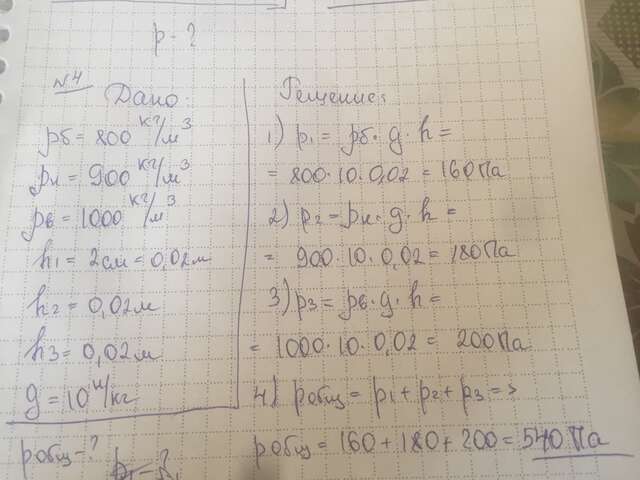 p - ?
№4
Дано:
pб = 800 кг/м³
pм = 900 кг/м³
pв = 1000 кг/м³
h₁ = 2см = 0,02м
h₂ = 0,02м
h₃ = 0,02м
g = 10 н/кг
pобщ - ?
Решение:
1) p₁ = pб · g · h =
= 800 · 10 · 0,02 = 160Па
2) p₂ = pм · g · h =
= 900 · 10 · 0,02 = 180Па
3) p₃ = pв · g · h =
= 1000 · 10 · 0,02 = 200Па
4) pобщ = p₁ + p₂ + p₃ =>
pобщ = 160 + 180 + 200 = 540Па